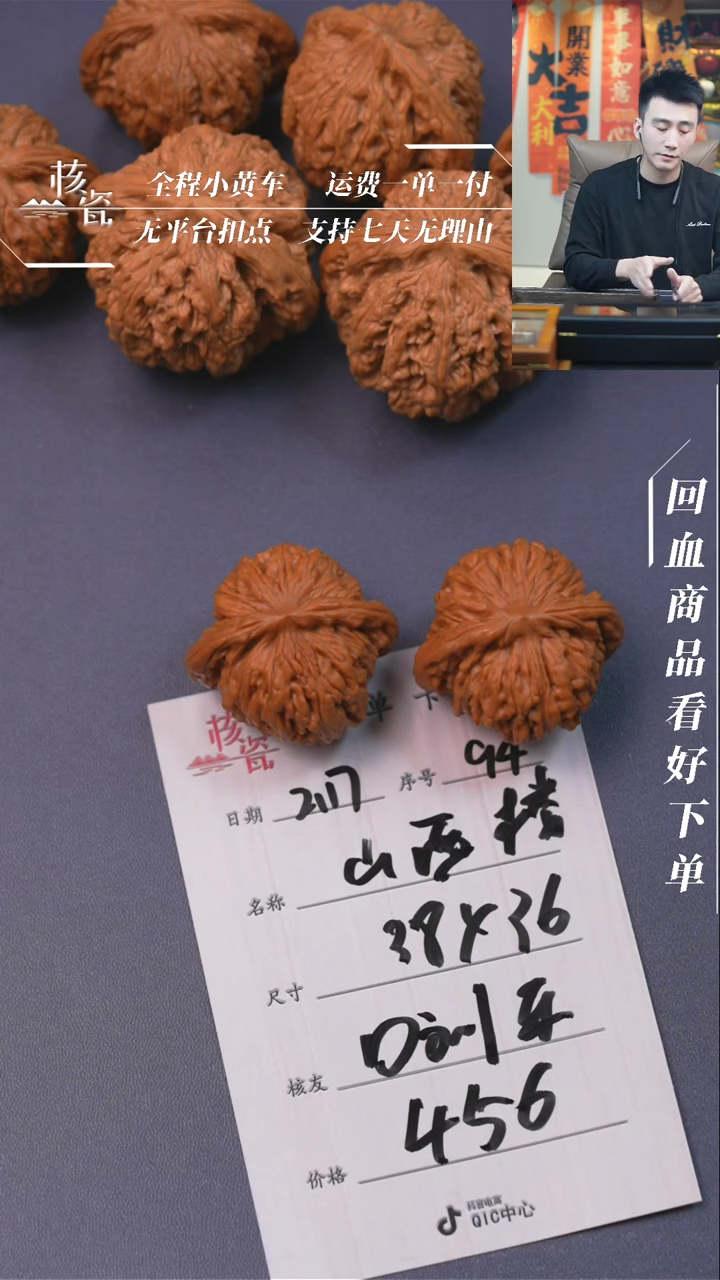 核瓷
全程小黄车 运费一单一付
无平台扣点 支持七天无理由
開業
大吉
大利
事事如意
财
心
回血商品看好下单
核瓷
单 卡
日期 2117 序号 94
名称 山西楼
尺寸 38X36
核友
价格 456
抖音电商
QIC中心